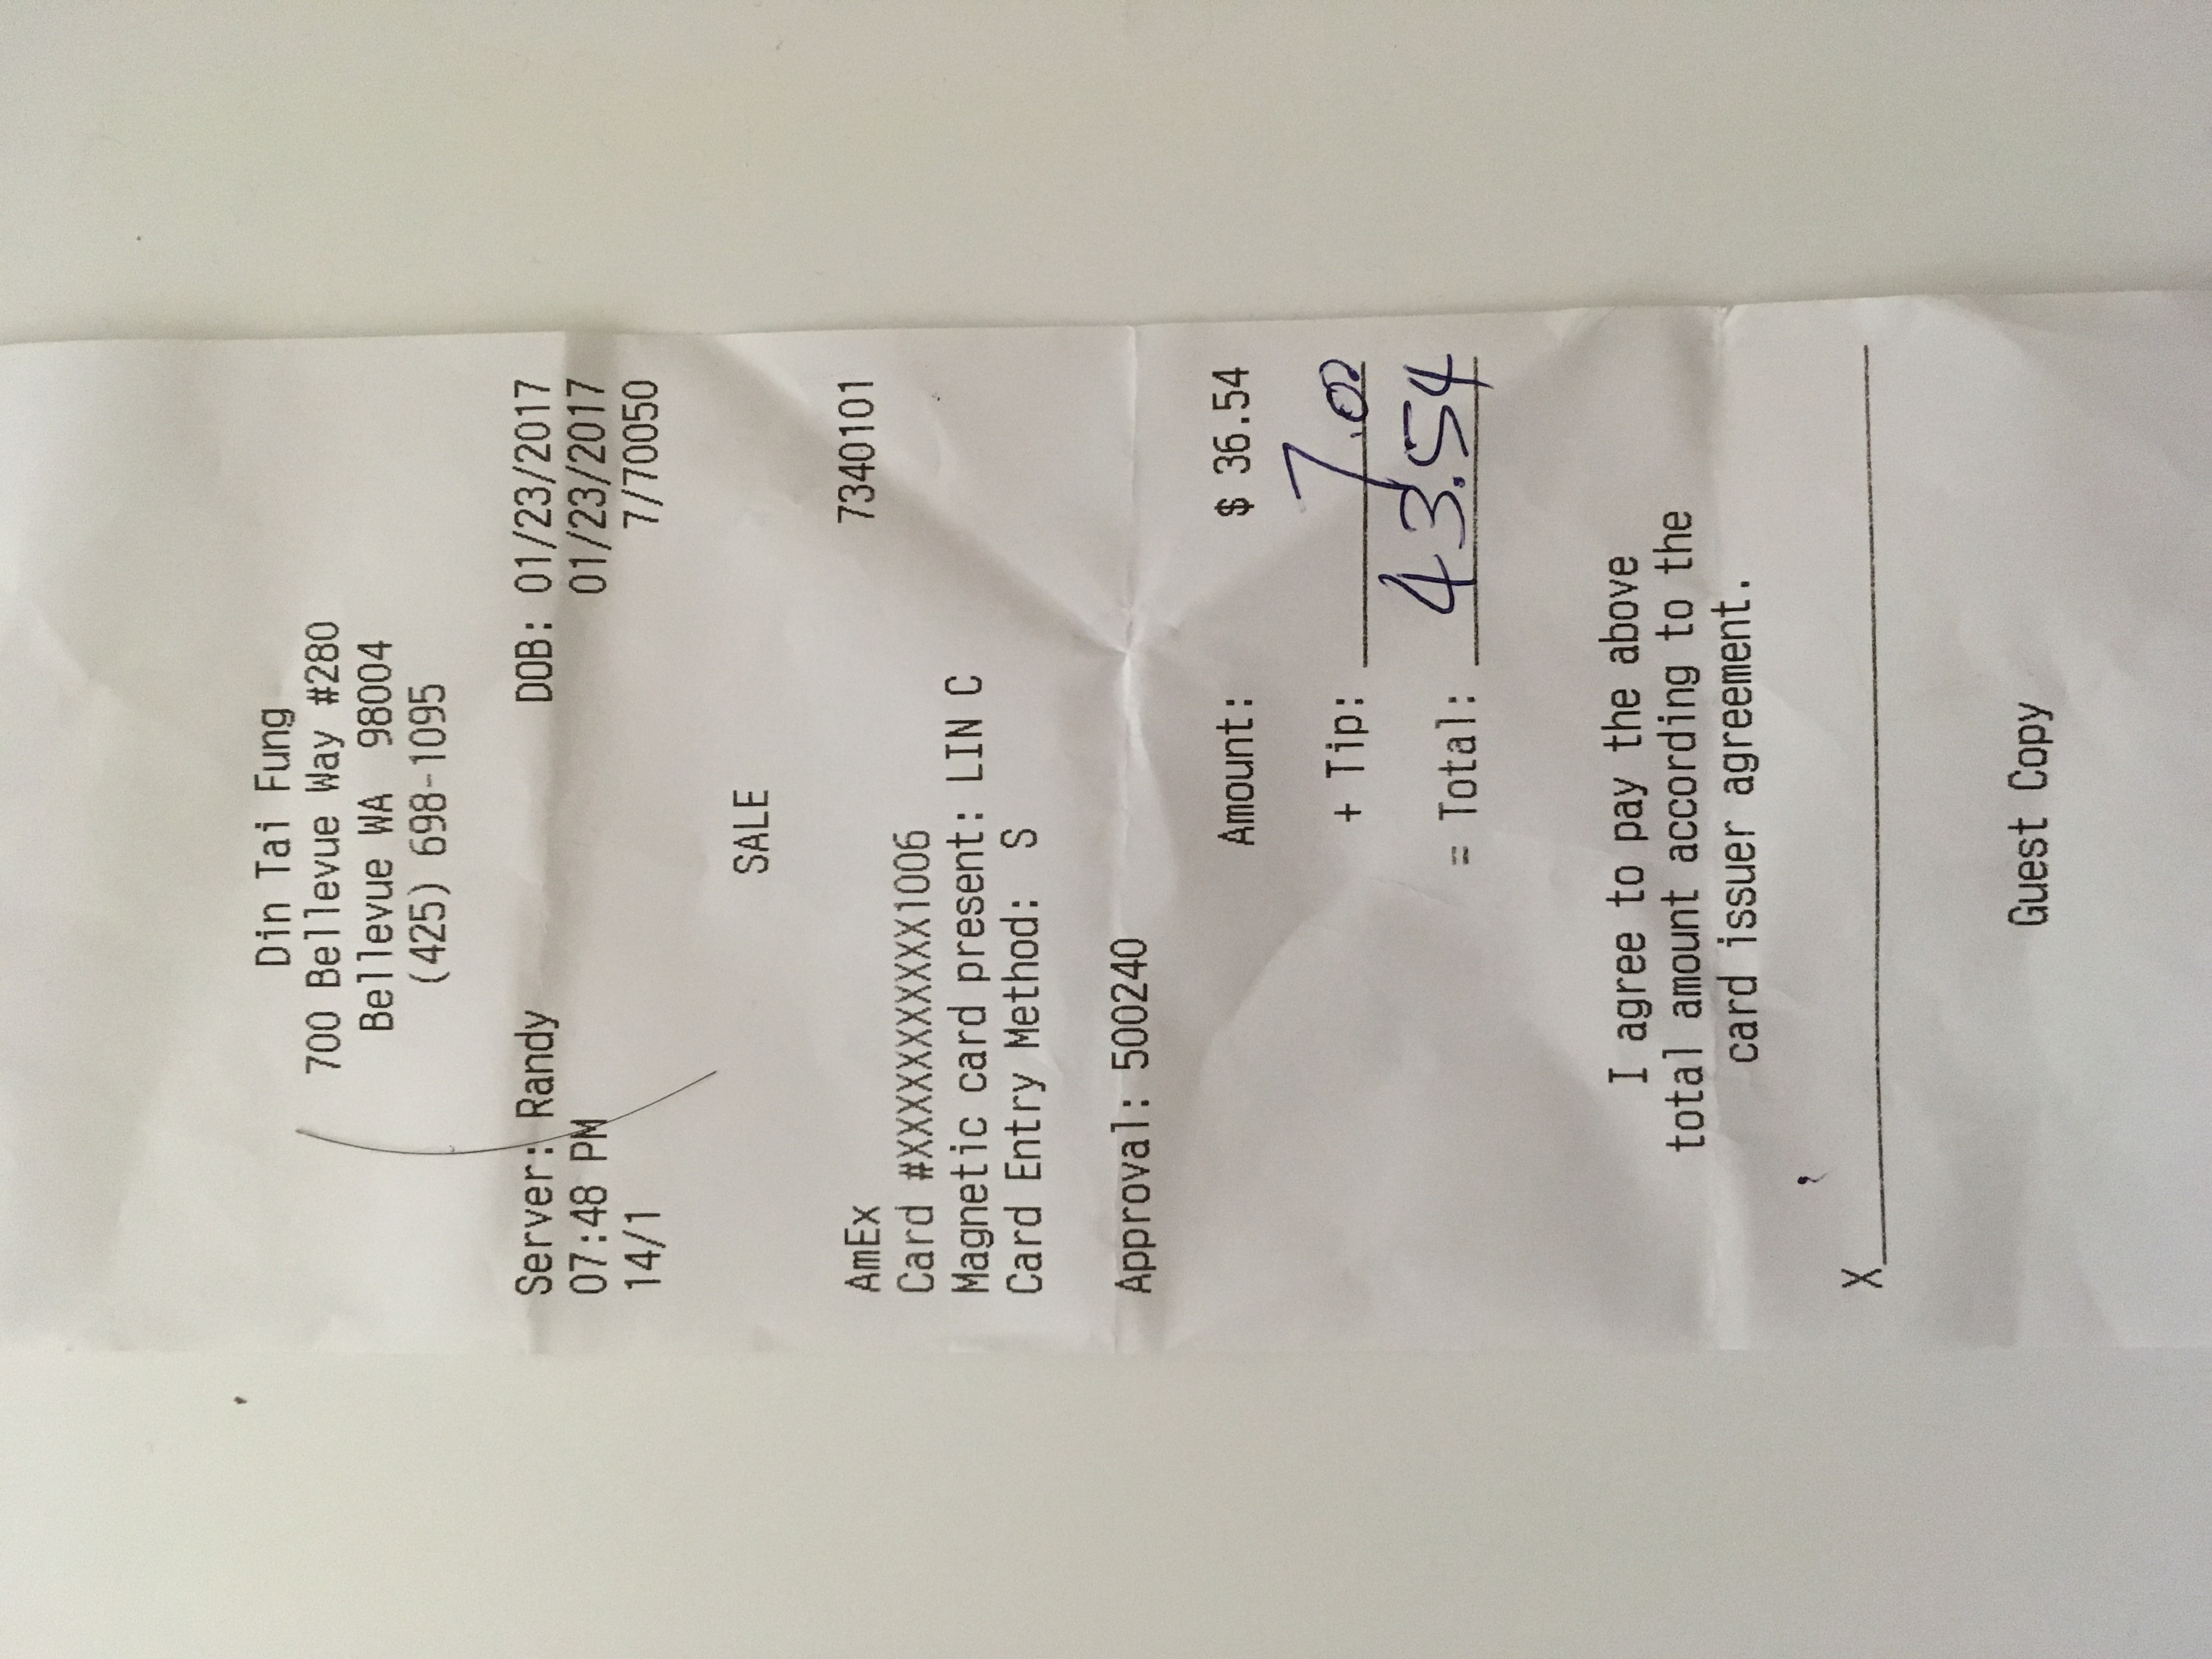 Din Tai Fung
700 Bellevue Way #280
Bellevue WA 98004
(425) 698-1095
Server: Randy DOB: 01/23/2017
07:48 PM 01/23/2017
14/1 7/70050
SALE
AmEx 7340101
Card #XXXXXXXXXXX1006
Magnetic card present: LIN C
Card Entry Method: S
Approval: 500240
Amount: $ 36.54
+ Tip: 7.00
= Total: 43.54
I agree to pay the above
total amount according to the
card issuer agreement.
X
Guest Copy